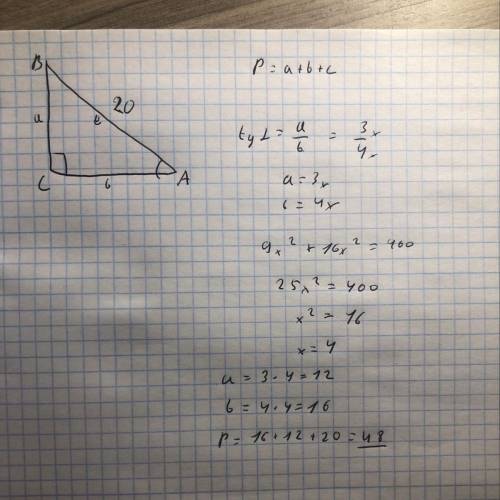 B
20
a
c
C
b
A
P = a+b+c
tg α = a/b = 3x/4x
a = 3x
b = 4x
9x² + 16x² = 400
25x² = 400
x² = 16
x = 4
a = 3 · 4 = 12
b = 4 · 4 = 16
P = 16 + 12 + 20 = 48